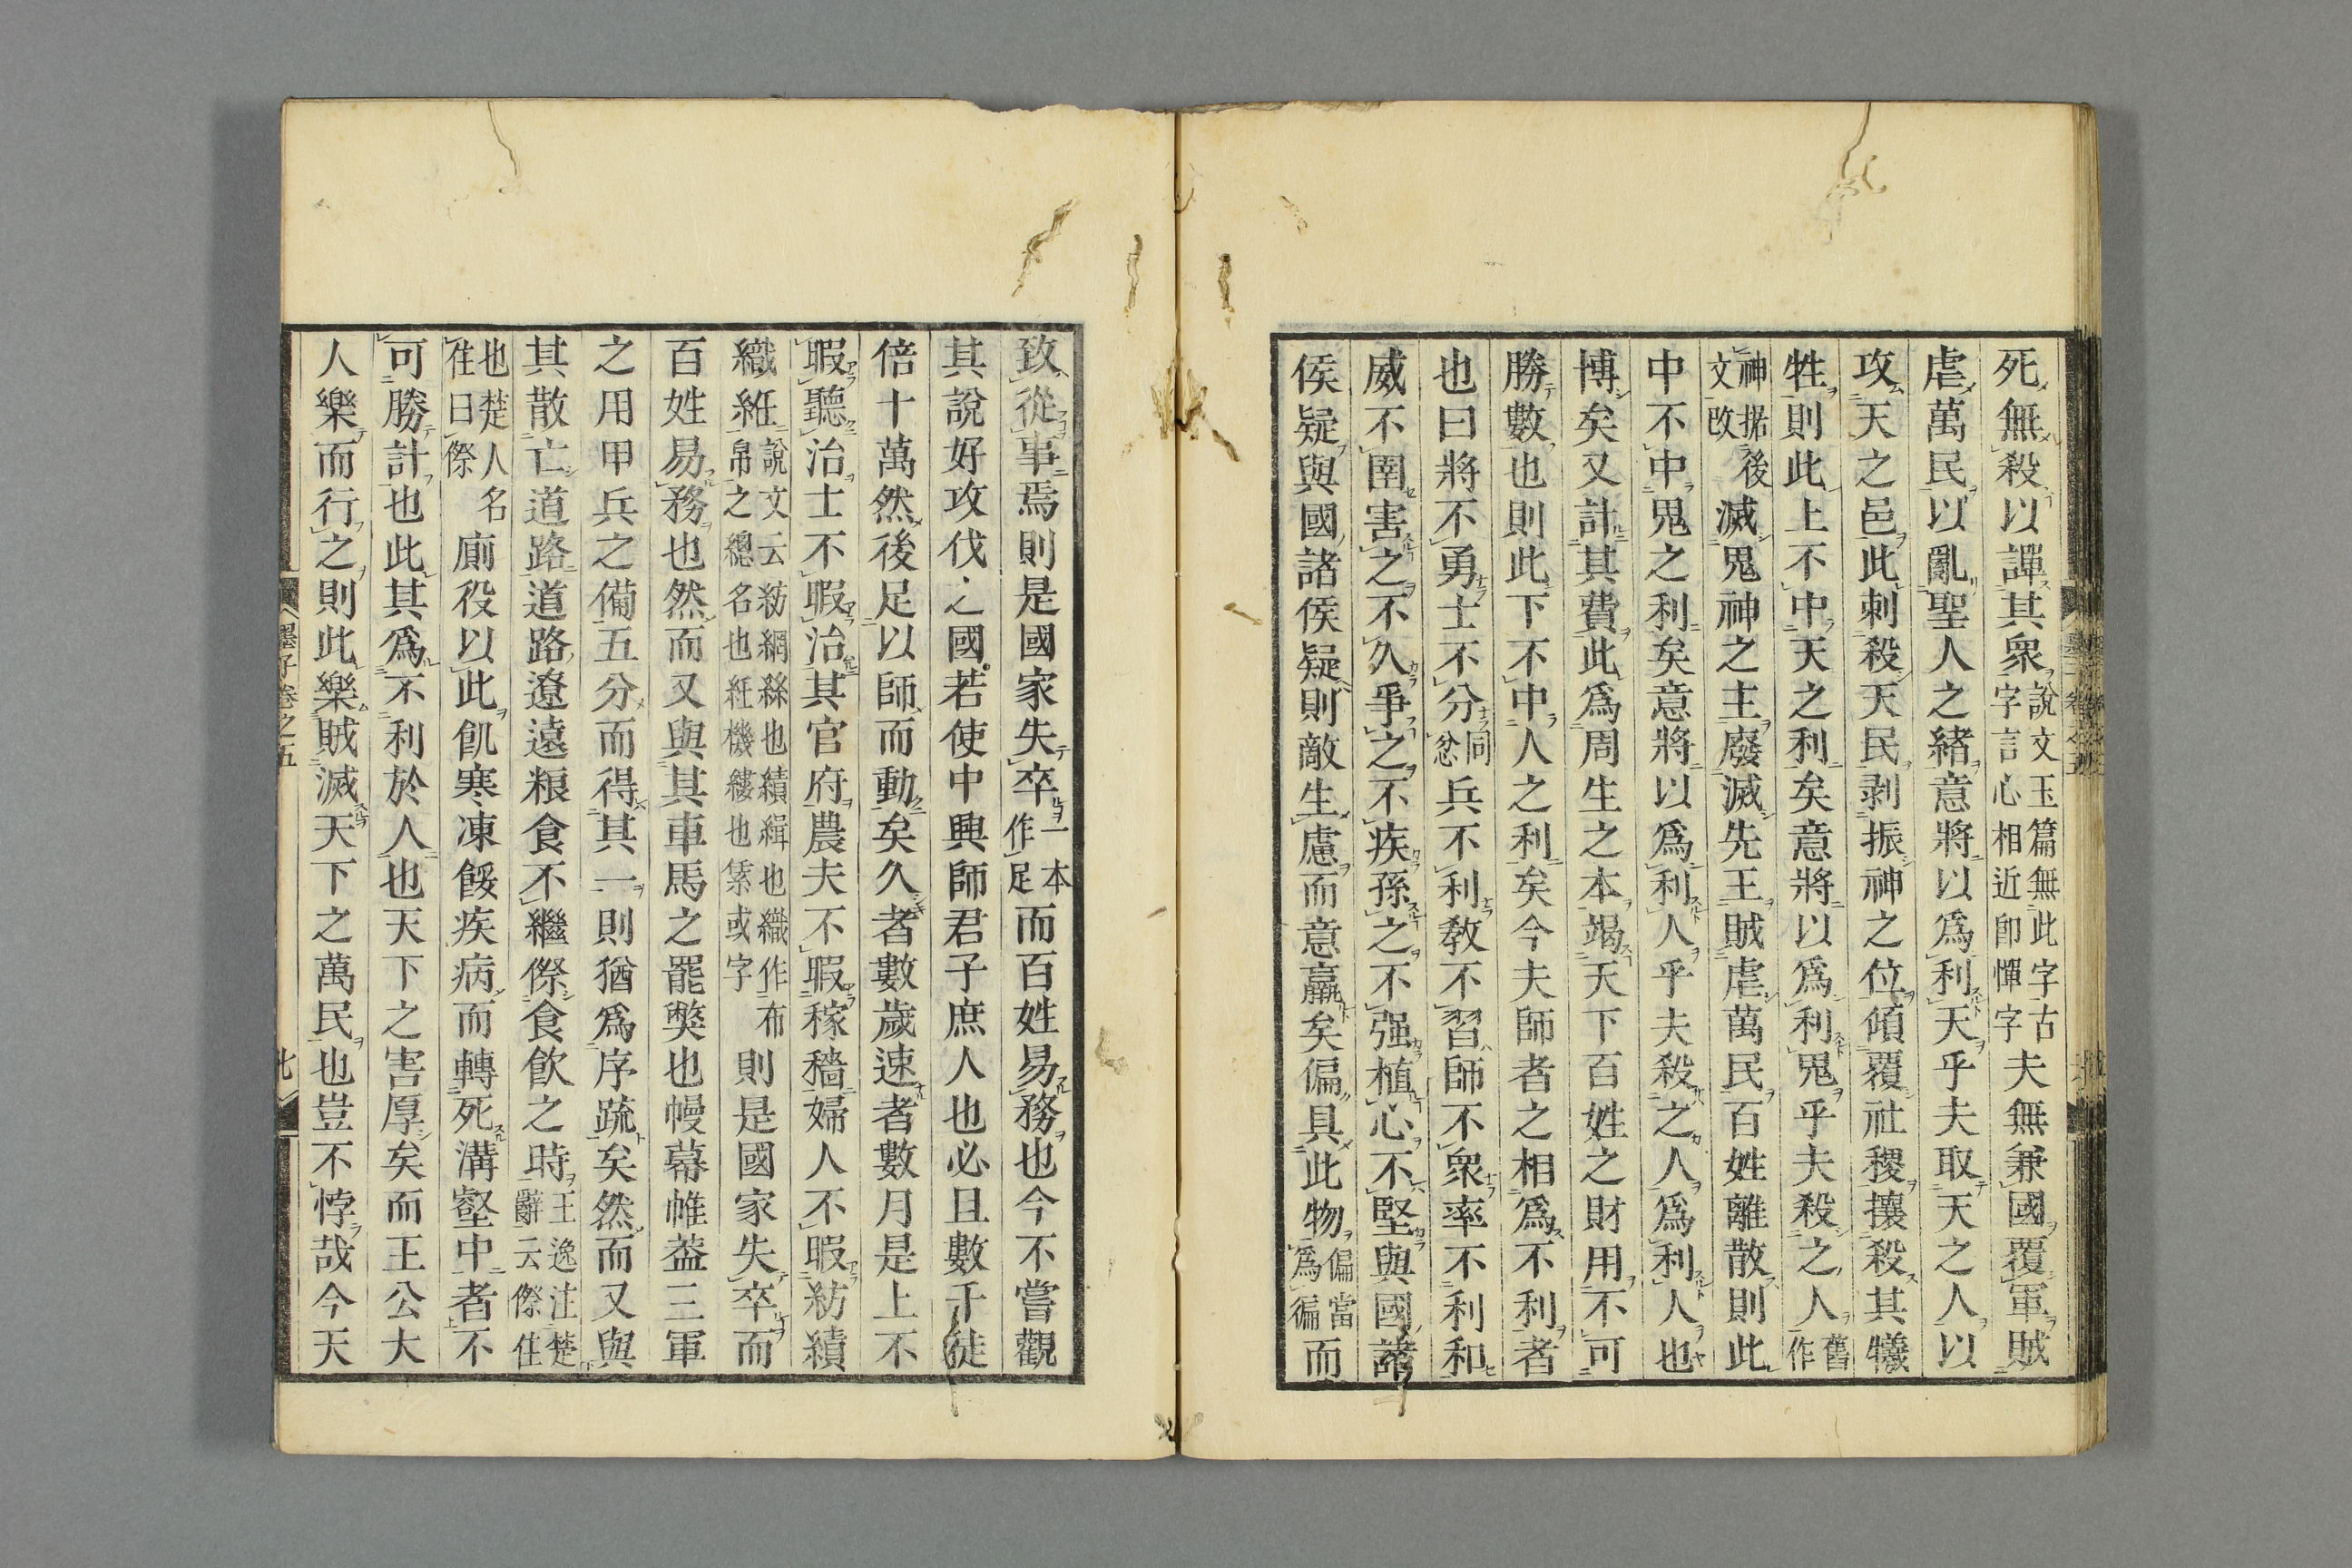 死無殺以譂其衆說文玉篇無此字古字言心相近即憚字夫無兼國覆軍賊
虐萬民以亂聖人之緒意將以爲利天乎夫取天之人以
攻天之邑此刺殺天民剥振神之位傾覆社稷攘殺其犧
牲則此上不中天之利矣意將以爲利鬼乎夫殺之人舊作
神據後文改滅鬼神之主廢滅先王賊虐萬民百姓離散則此
中不中鬼之利矣意將以爲利人乎夫殺之人爲利人也
博矣又計其費此爲周生之本竭天下百姓之財用不可
勝數也則此下不中人之利矣今夫師者之相爲不利者
也曰將不勇士不分同忿兵不利教不習師不衆率不利和
威不圉害之不久爭之不疾孫之不强植心不堅與國諸
侯疑與國諸侯疑則敵生慮而意羸矣偏具此物偏當爲徧而
致從事焉則是國家失卒一本作足而百姓易務也今不嘗觀
其說好攻伐之國若使中興師君子庶人也必且數千徒
倍十萬然後足以師而動矣久者數歲速者數月是上不
暇聽治士不暇治其官府農夫不暇稼穡婦人不暇紡績
織紝說文云紡網絲也績緝也織作布帛之總名也紝機縷也𦀖或字則是國家失卒而
百姓易務也然而又與其車馬之罷獘也幔幕帷葢三軍
之用甲兵之備五分而得其一則猶爲序疏矣然而又與
其散亡道路道路遼遠粮食不繼傺食飲之時王逸注楚辭云傺住
也楚人名住曰傺厠役以此飢寒凍餒疾病而轉死溝壑中者不
可勝計也此其爲不利於人也天下之害厚矣而王公大
人樂而行之則此樂賊滅天下之萬民也豈不悖哉今天
墨子卷之五